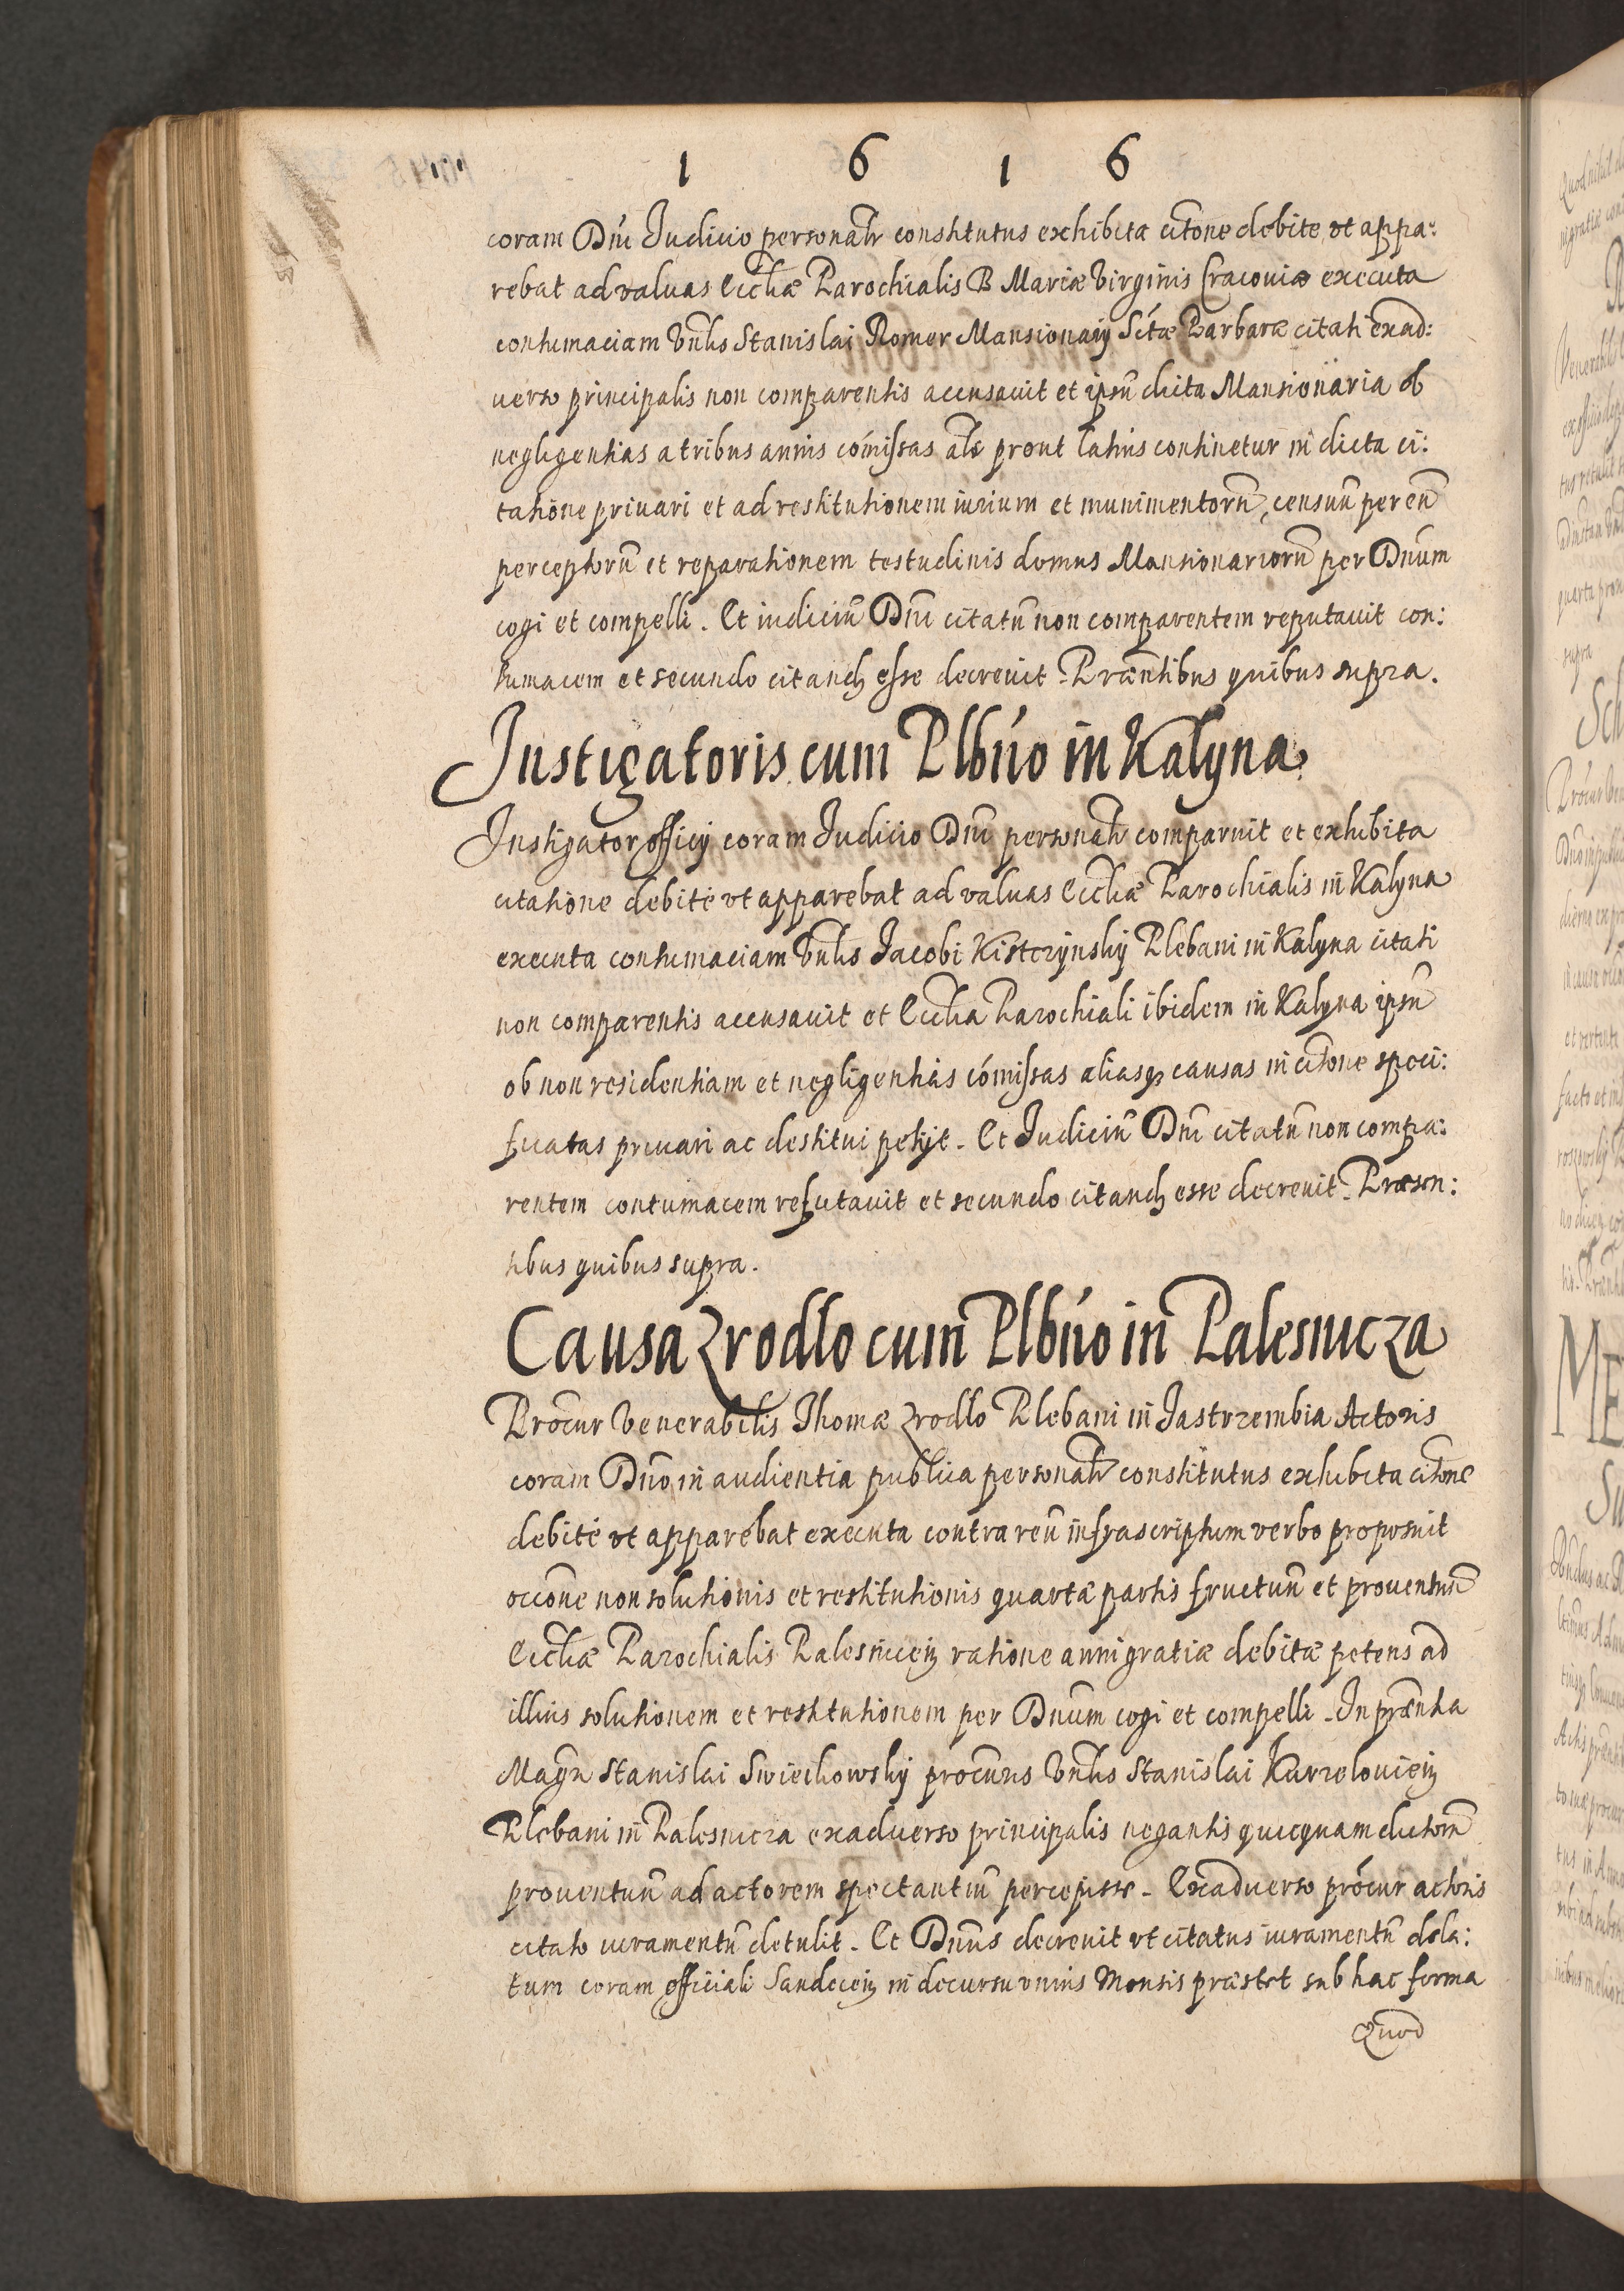 1 6 1 6
coram Dnī Iudicio personalr constitutus exhibita citone debite vt appa:
rebat ad valuas Eccliæ Parochialis B Mariæ Virginis Cracouiæ executa
contumaciam Vnlis Stanislai Romer Mansionarij Sctæ Barbaræ citati exad:
uerso principalis non comparentis accusauit et ipsū dicta Mansionaria ob
negligentias a tribus annis cōmissas als prout latius continetur in dicta ci:
tatione priuari et ad restitutionem iurium et munimentorū, censuū per eū
perceptorū et reparationem testudinis domus Mansionariorū per Dnūm
cogi et compelli. Et iudiciū Dnī citatū non comparentem reputauit con:
tumacem et secundo citandū esse decreuit. Præntibus quibus supra.
Instigatoris cum Plbno in Kalyna
Instigator officij coram Iudicio Dnī personalr comparuit et exhibita
citatione debite vt apparebat ad valuas Eccliæ Parochialis in Kalyna
executa contumaciam Vnlis Iacobi Kistrzynskij Plebani in Kalyna citati
non comparentis accusauit et Ecclia Parochiali ibidem in Kalyna ipsū
ob non residentiam et negligentias cōmissas aliasq causas in citone speci:
ficatas priuari ac destitui petijt. Et Iudiciū Dnī citatū non compa:
rentem contumacem reputauit et secundo citandū esse decreuit. Præsen:
tibus quibus supra.
Causa Zrodlo cum Plbno in Palesnicza
Procur Venerabilis Thomæ Zrodlo Plebani in Jastrzembia Actoris
coram Dnō in audientia publica personalr constitutus exhibita citone
debite vt apparebat executa contra reū infrascriptum verbo proposuit
occōne non solutionis et restitutionis quartæ partis fructuū et prouentuū
Eccliæ Parochialis Palesnicen ratione anni gratiæ debitæ petens ad
illius solutionem et restitutionem per Dnūm cogi et compelli. In præntia
Magri Stanislai Swiechowskij procuris Vnlis Stanislai Kurzelouien
Plebani in Palesnicza exaduerso principalis negantis quicquam dictorū
prouentuū ad actorem spectantiū percepisse. Exaduerso prócur actoris
citato iuramentū detulit. Et Dnūs decreuit vt citatus iuramentū dela:
tum coram officiali Sandecen in decursu vnius Mensis præstet sub hac forma
Quod